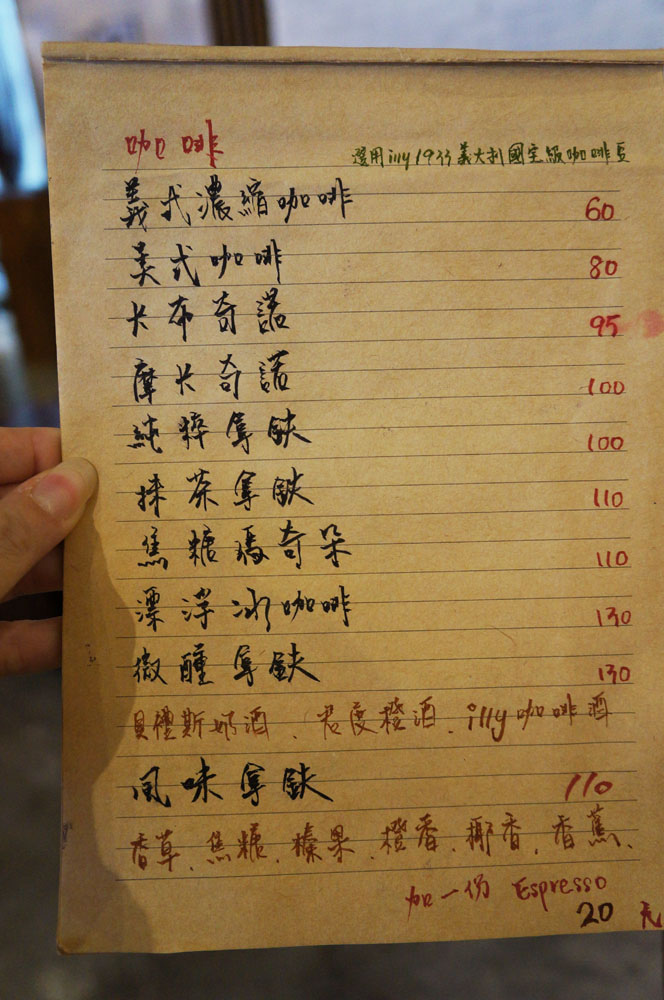 咖啡 選用illy1933義大利國宝級咖啡豆
義式濃縮咖啡 60
美式咖啡 80
卡布奇諾 95
摩卡奇諾 100
純粹拿鉄 100
抹茶拿鉄 110
焦糖瑪奇朵 110
漂浮冰咖啡 130
微醺拿鉄 130
貝禮斯奶酒、君度橙酒、illy咖啡酒
風味拿鉄 110
香草、焦糖、榛果、橙香、椰香、香蕉、
加一份 Espresso
20 元